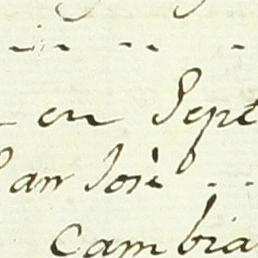 en Sept
San José
Cambia